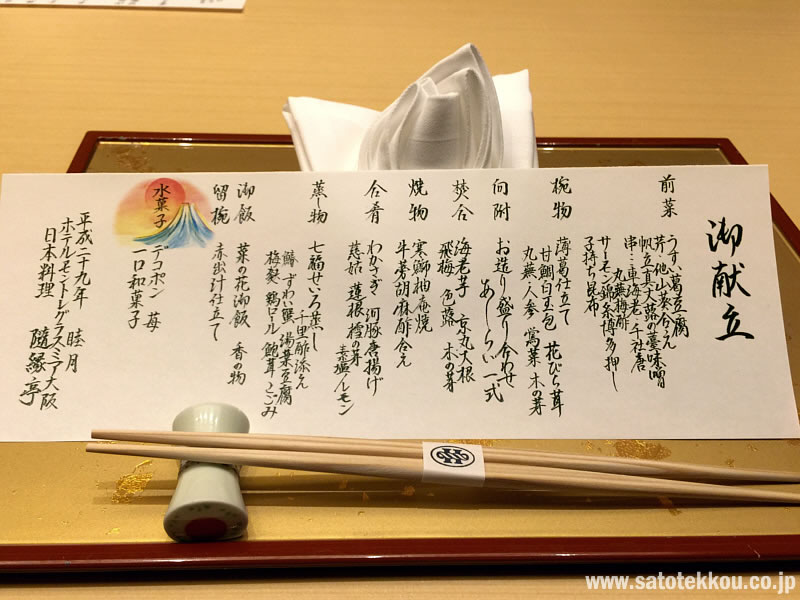 御献立
前菜
うすい葛豆腐
芹・地山葵合え
帆立真丈蕗の薹味噌
串:車海老・千社唐
丸蕪梅酢
サーモン錦糸博多押し
子持ち昆布
椀物
薄葛仕立て
甘鯛白玉包 花びら茸
丸蕪・人参 鶯菜 木の芽
向附
お造り盛り合わせ
あしらい一式
焚合
海老芋 京丸大根
飛梅 色蕗 木の芽
焼物
寒鰤柚庵焼
牛蒡胡麻酢合え
合肴
わかさぎ 河豚唐揚げ
慈姑 蓮根 楤の芽
素塩/レモン
蒸し物
七福せいろ蒸し
千里酢添え
鰆 ずわい蟹 湯葉豆腐
梅麩 鶏ロール 鮑茸 こごみ
御飯
菜の花御飯 香の物
留椀
赤出汁仕立て
水菓子
デコポン 苺
一口和菓子
平成二十九年 睦月
ホテルモントレ グラスミア大阪
日本料理 隨縁亭
www.satotekkou.co.jp